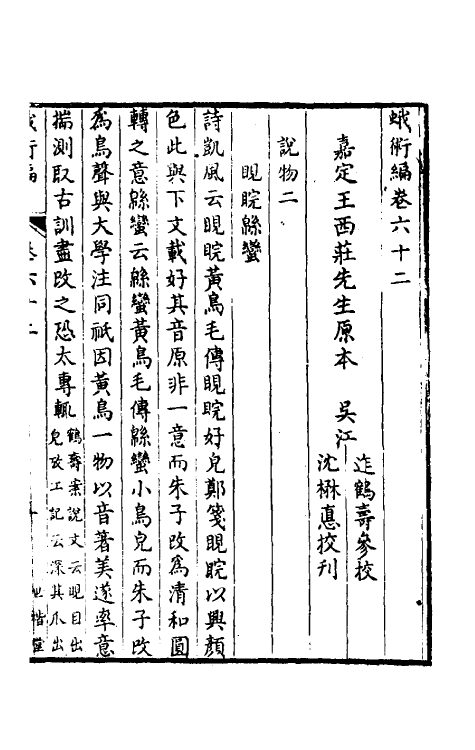 蛾術編卷六十二
嘉定王西莊先生原本　吳江
迮鶴壽參校
沈楙悳挍刋
說物二
睍睆緜蠻
詩凱風云睍睆黃鳥毛傳睍睆好皃鄭箋睍睆以興顏
色此與下文載好其音原非一意而朱子改爲清和圓
轉之意緜蠻云緜蠻黃鳥毛傳緜蠻小鳥皃而朱子改
爲鳥聲與大學注同祇因黃鳥一物以音著美遂率意
揣測取古訓盡改之恐太專輒
鶴壽案說文云睍目出
皃攷工記云深其爪出
蛾術編
卷六十二
世楷堂